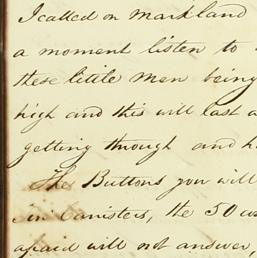 I called on Markland
a moment listen to
these little men being
high and this will last a
getting through and h
The Buttons you will
in Canisters, the 50
afraid will not answer,